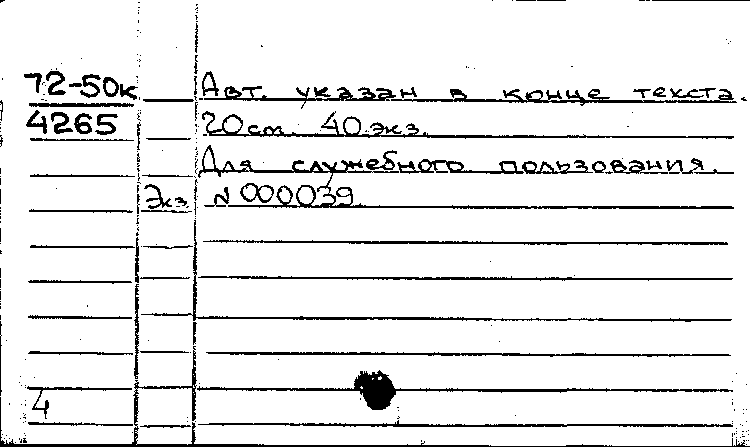 72-50к Авт. указан в конце текста.
4265 20 cm. 40 экз.
Для служебного пользования.
Экз N 000039.
4